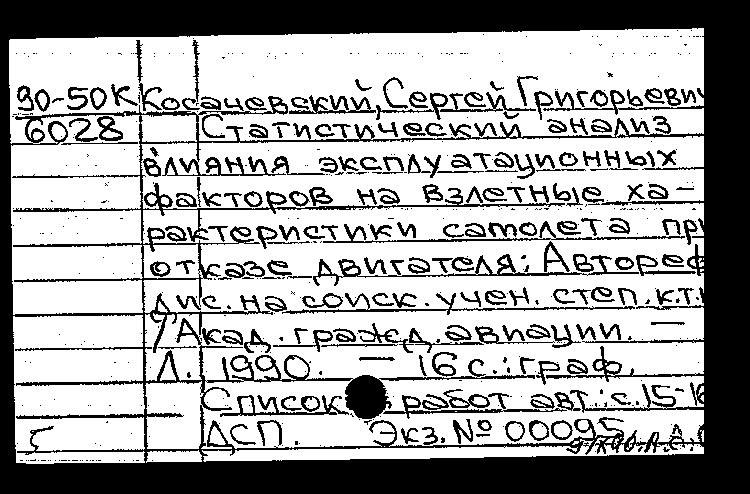 90-50К Косачевский, Сергей Григорьевич
6028 Статистический анализ
влияния эксплуатационных
факторов на взлетные ха-
рактеристики самолета при
отказе двигателя: Автореф
дис. на соиск. учен. степ. к.т.н
/ Акад. гражд. авиации. —
Л. 1990. — 16 с.: граф.
Список работ авт.: с. 15-16
ДСП. Экз. № 00095